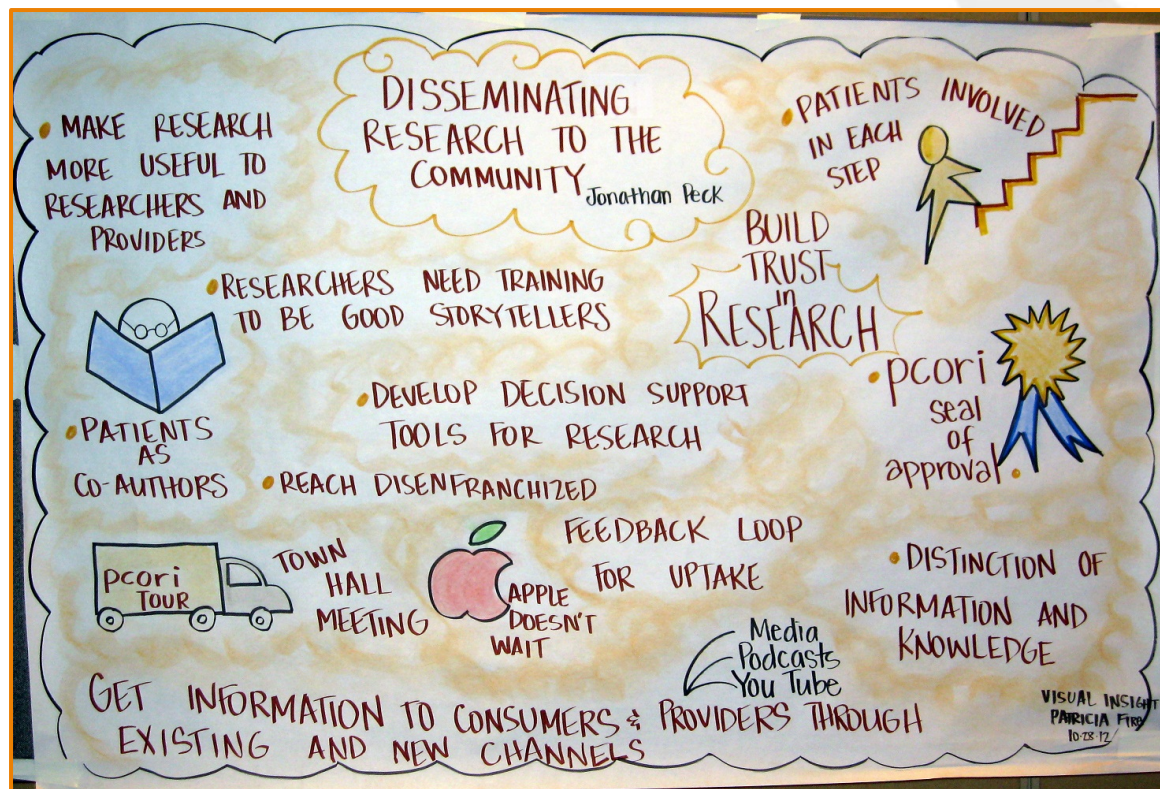 DISSEMINATING
RESEARCH TO THE
COMMUNITY
Jonathan Peck
• MAKE RESEARCH
MORE USEFUL TO
RESEARCHERS AND
PROVIDERS
• PATIENTS INVOLVED
IN EACH
STEP
BUILD
TRUST
in
RESEARCH
• RESEARCHERS NEED TRAINING
TO BE GOOD STORYTELLERS
• pcori
seal
of
approval •
• DEVELOP DECISION SUPPORT
TOOLS FOR RESEARCH
• PATIENTS
AS
CO-AUTHORS
• REACH DISENFRANCHIZED
pcori
TOUR
TOWN
HALL
MEETING
APPLE
DOESN'T
WAIT
FEEDBACK LOOP
FOR UPTAKE
• DISTINCTION OF
INFORMATION AND
KNOWLEDGE
Media
Podcasts
You Tube
GET INFORMATION TO CONSUMERS & PROVIDERS THROUGH
EXISTING AND NEW CHANNELS
VISUAL INSIGHT
PATRICIA
10·28·12